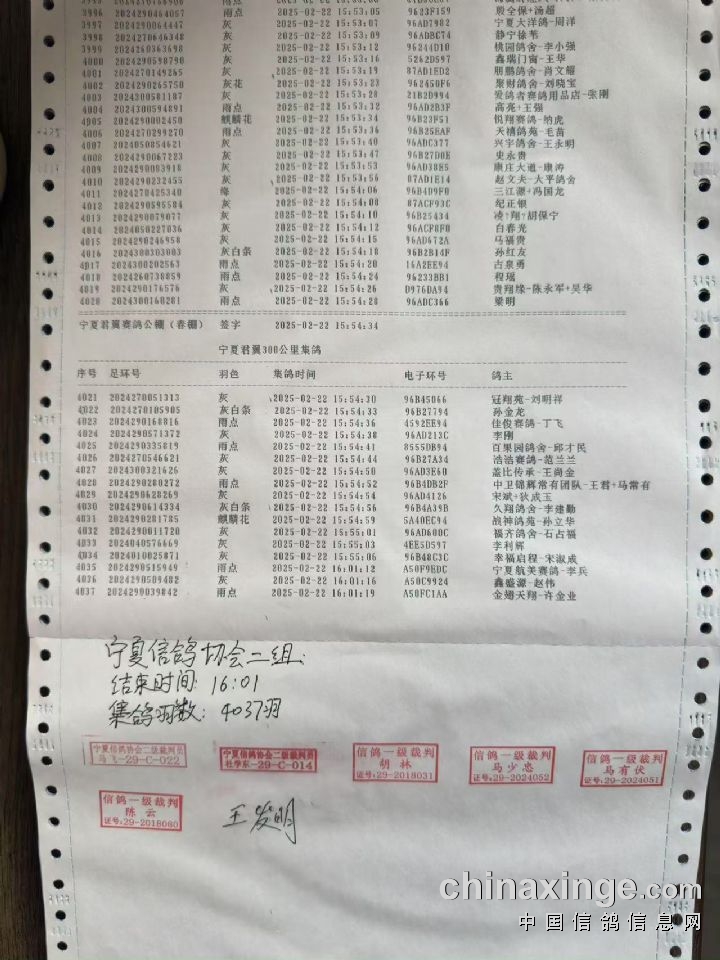 3996 2024290464057 雨点 2025-02-22 15:53:06 9623F159 殷全保+汤超
3997 2024290064447 灰 2025-02-22 15:53:07 96AD7982 宁夏大洋鸽-周洋
3998 2024270646348 灰 2025-02-22 15:53:09 96ADBC74 静宁徐苇
3999 2024260363698 灰 2025-02-22 15:53:12 96244D10 桃园鸽舍-李小强
4000 2024290598790 灰 2025-02-22 15:53:16 5262D597 鑫瑞门窗-王华
4001 2024270149265 灰 2025-02-22 15:53:19 87AD1ED2 朋鹏鸽舍-肖文耀
4002 2024290265750 灰花 2025-02-22 15:53:23 962450F6 聚财鸽舍-刘晓宝
4003 2024300581187 灰 2025-02-22 15:53:28 21B2D994 爱鸽者赛鸽用品店-张刚
4004 2024300594891 雨点 2025-02-22 15:53:32 96AD2B3F 高亮+王强
4005 2024290002450 麒麟花 2025-02-22 15:53:34 96B23F51 悦翔赛鸽-纳虎
4006 2024270299270 雨点 2025-02-22 15:53:36 96B25EAF 天禧鸽苑-毛苗
4007 2024050854621 灰 2025-02-22 15:53:40 96ADC377 兴宇鸽舍-王永明
4008 2024290067223 灰 2025-02-22 15:53:47 96B27D0E 史永贵
4009 2024290083918 灰 2025-02-22 15:53:53 96AD38E5 康庄大道-康涛
4010 2024290232455 灰 2025-02-22 15:53:56 87AD1E14 赵文夫-大平鸽舍
4011 2024270425340 绛 2025-02-22 15:54:06 96B4D9F0 三江源+冯国龙
4012 2024290595584 灰 2025-02-22 15:54:08 87ACF93C 纪正银
4013 2024290079077 灰 2025-02-22 15:54:10 96B25434 凌?翔?胡保宁
4014 2024050227036 灰 2025-02-22 15:54:12 96ACF8F0 白春光
4015 2024290246958 灰 2025-02-22 15:54:15 96AD672A 马福贵
4016 2024300303003 灰白条 2025-02-22 15:54:18 96B2B14F 孙红友
4017 2024300202563 雨点 2025-02-22 15:54:20 16A2EE94 占泉勇
4018 2024260738859 雨点 2025-02-22 15:54:24 96233BB1 程瑶
4019 2024290176576 灰 2025-02-22 15:54:26 D976DA94 贵翔缘-陈永军+吴华
4020 2024300160281 雨点 2025-02-22 15:54:28 96ADC366 梁明
宁夏君翼赛鸽公棚（春棚） 签字 2025-02-22 15:54:34
宁夏君翼300公里集鸽
序号 足环号 羽色 集鸽时间 电子环号 鸽主
4021 2024270051313 灰 2025-02-22 15:54:30 96B45066 冠翔苑-刘明祥
4022 2024270105905 灰白条 2025-02-22 15:54:33 96B27794 孙金龙
4023 2024290168816 雨点 2025-02-22 15:54:36 4592EE94 佳俊赛鸽-丁飞
4024 2024290571372 灰 2025-02-22 15:54:38 96AD213C 李刚
4025 2024290335819 雨点 2025-02-22 15:54:41 8555DB94 百果园鸽舍-邱才民
4026 2024270546621 灰 2025-02-22 15:54:44 96B27A34 浩浩赛鸽-范兰兰
4027 2024300321626 灰 2025-02-22 15:54:50 96AD3E60 盖比传承-王尚金
4028 2024290280272 雨点 2025-02-22 15:54:52 96B4DB2F 中卫锦辉常有团队-王君+马常有
4029 2024290628269 灰 2025-02-22 15:54:54 96AD4126 宋斌+狄成玉
4030 2024290614334 灰白条 2025-02-22 15:54:56 96B4A39B 久翔鸽舍-李建勤
4031 2024290281785 麒麟花 2025-02-22 15:54:59 5A40EC94 战神鸽苑-孙立华
4032 2024290011720 灰 2025-02-22 15:55:01 96AD600C 福齐鸽舍-石占福
4033 2024040576669 灰 2025-02-22 15:55:03 4EE5D597 李利辉
4034 2024010025871 灰 2025-02-22 15:55:06 96B48C3C 幸福启程-宋淑成
4035 2024290515949 雨点 2025-02-22 16:01:12 A50F9EDC 宁夏航美赛鸽-李兵
4036 2024290509482 灰 2025-02-22 16:01:16 A50C9924 鑫盛源-赵伟
4037 2024290039842 雨点 2025-02-22 16:01:19 A50FC1AA 金翅天翔-许金业
宁夏信鸽协会二组:
结束时间: 16:01
集鸽羽数: 4037羽
宁夏信鸽协会二级裁判员
马飞-29-C-022
宁夏信鸽协会二级裁判员
杜学东-29-C-014
信鸽一级裁判
胡林
证号:29-2018031
信鸽一级裁判
马少忠
证号:29-2024052
信鸽一级裁判
马有伏
证号:29-2024051
信鸽一级裁判
陈云
证号:29-2018080
王发明
chinaxinge.com
中国信鸽信息网